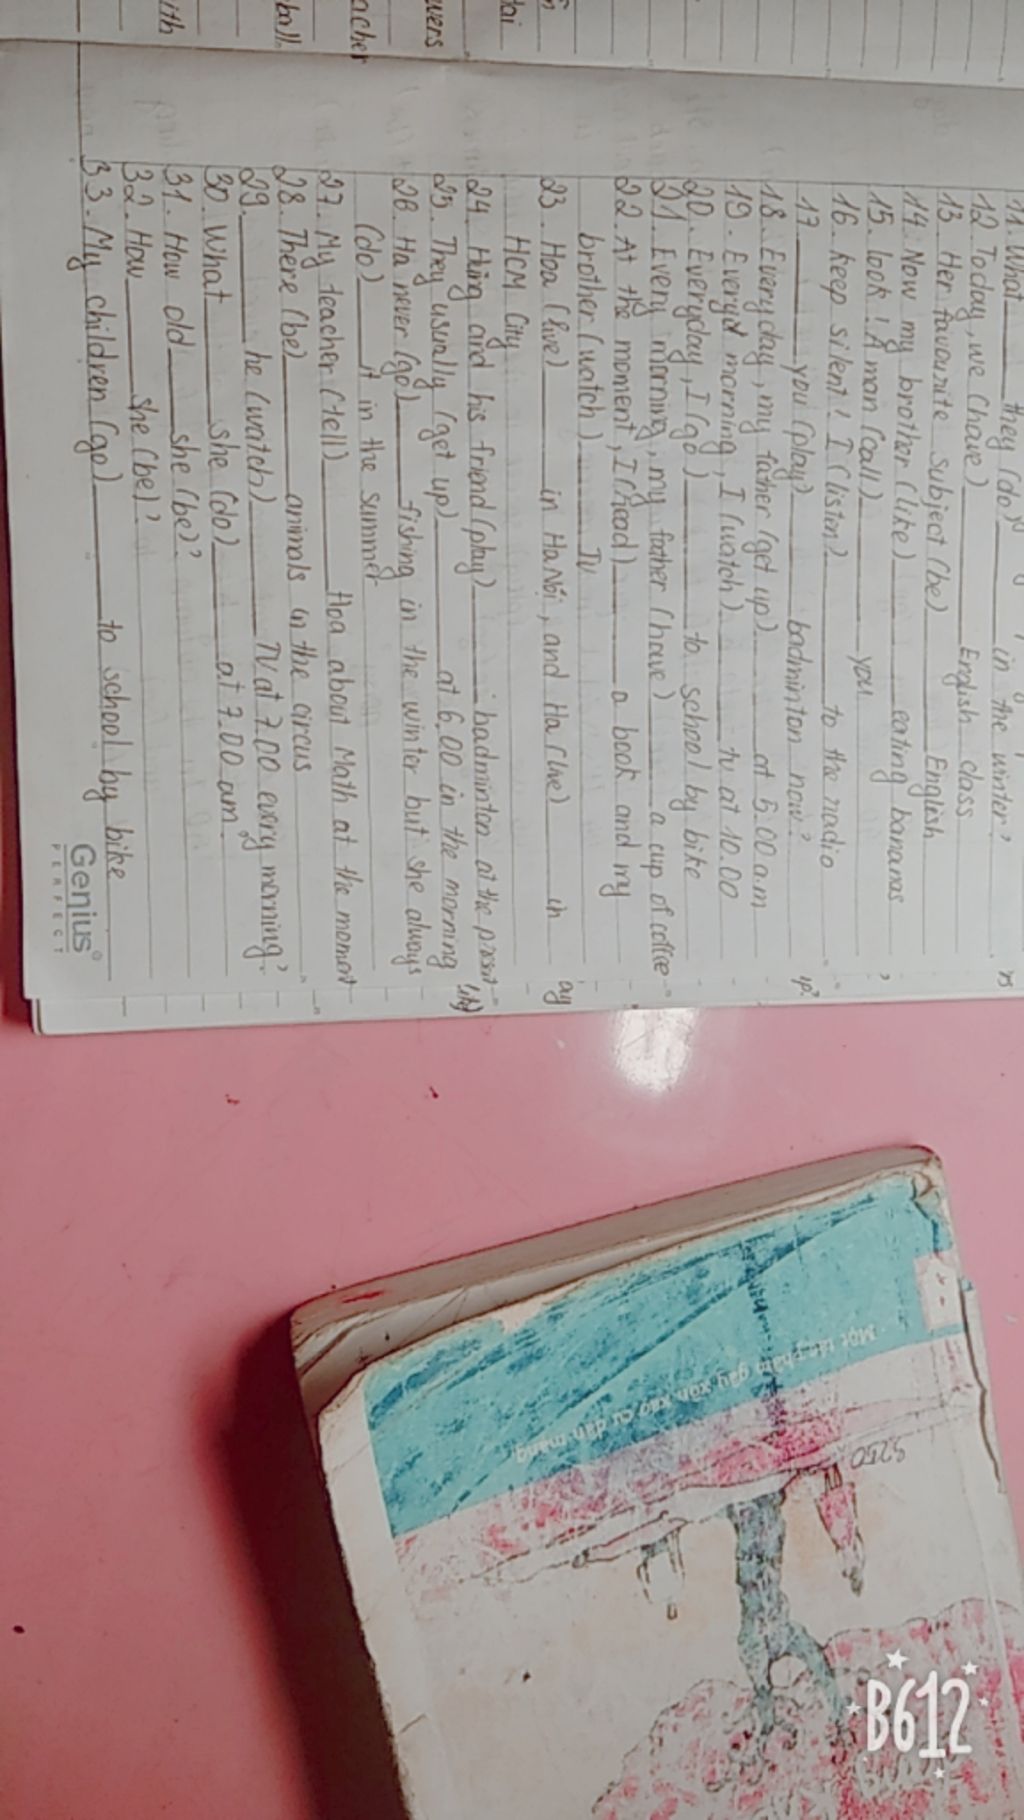 11. What ____ they (do) ____ in the winter?
12. Today, we (have) ____ English class
13. Her favourite subject (be) ____ English
14. Now my brother (like) ____ eating bananas
15. look! A man (call) ____ you
16. keep silent! I (listen) ____ to the radio
17. ____ you (play) ____ badminton now?
18. Everyday, my father (get up) ____ at 5.00 a.m
19. Everyd morning, I (watch) ____ tv at 10.00
20. Everyday, I (go) ____ to school by bike
21. Every morning, my father (have) ____ a cup of coffee
22. At the moment, I (read) ____ a book and my
brother (watch) ____ TV
23. Hoa (live) ____ in Ha Nội, and Ha (live) ____ in
HCM City
24. Hùng and his friend (play) ____ badminton at the
25. They usually (get up) ____ at 6.00 in the morning
26. Ha never (go) ____ fishing in the winter but she always
(do) ____ it in the summer
27. My teacher (tell) ____ Hoa about Math at the moment
28. There (be) ____ animals in the circus
29. ____ he (watch) ____ TV at 7.00 every morning?
30. What ____ she (do) ____ at 7.00 am?
31. How old ____ she (be)?
32. How ____ she (be)?
33. My children (go) ____ to school by bike
Genius
PERFECT
vers
acher
ball.
ith
Một tác phẩm gây xôn xao cư dân mạng
B612